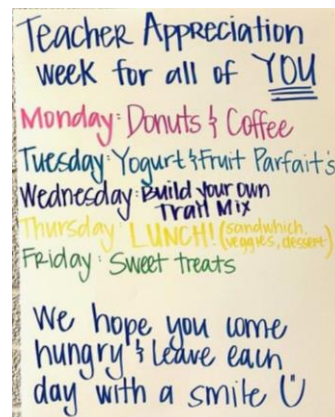 Teacher Appreciation
week for all of YOU
Monday: Donuts & Coffee
Tuesday: Yogurt & Fruit Parfait's
Wednesday: Build Your Own
Trail Mix
Thursday: LUNCH! (sandwhich,
veggies, dessert)
Friday: Sweet treats
We hope you come
hungry & leave each
day with a smile